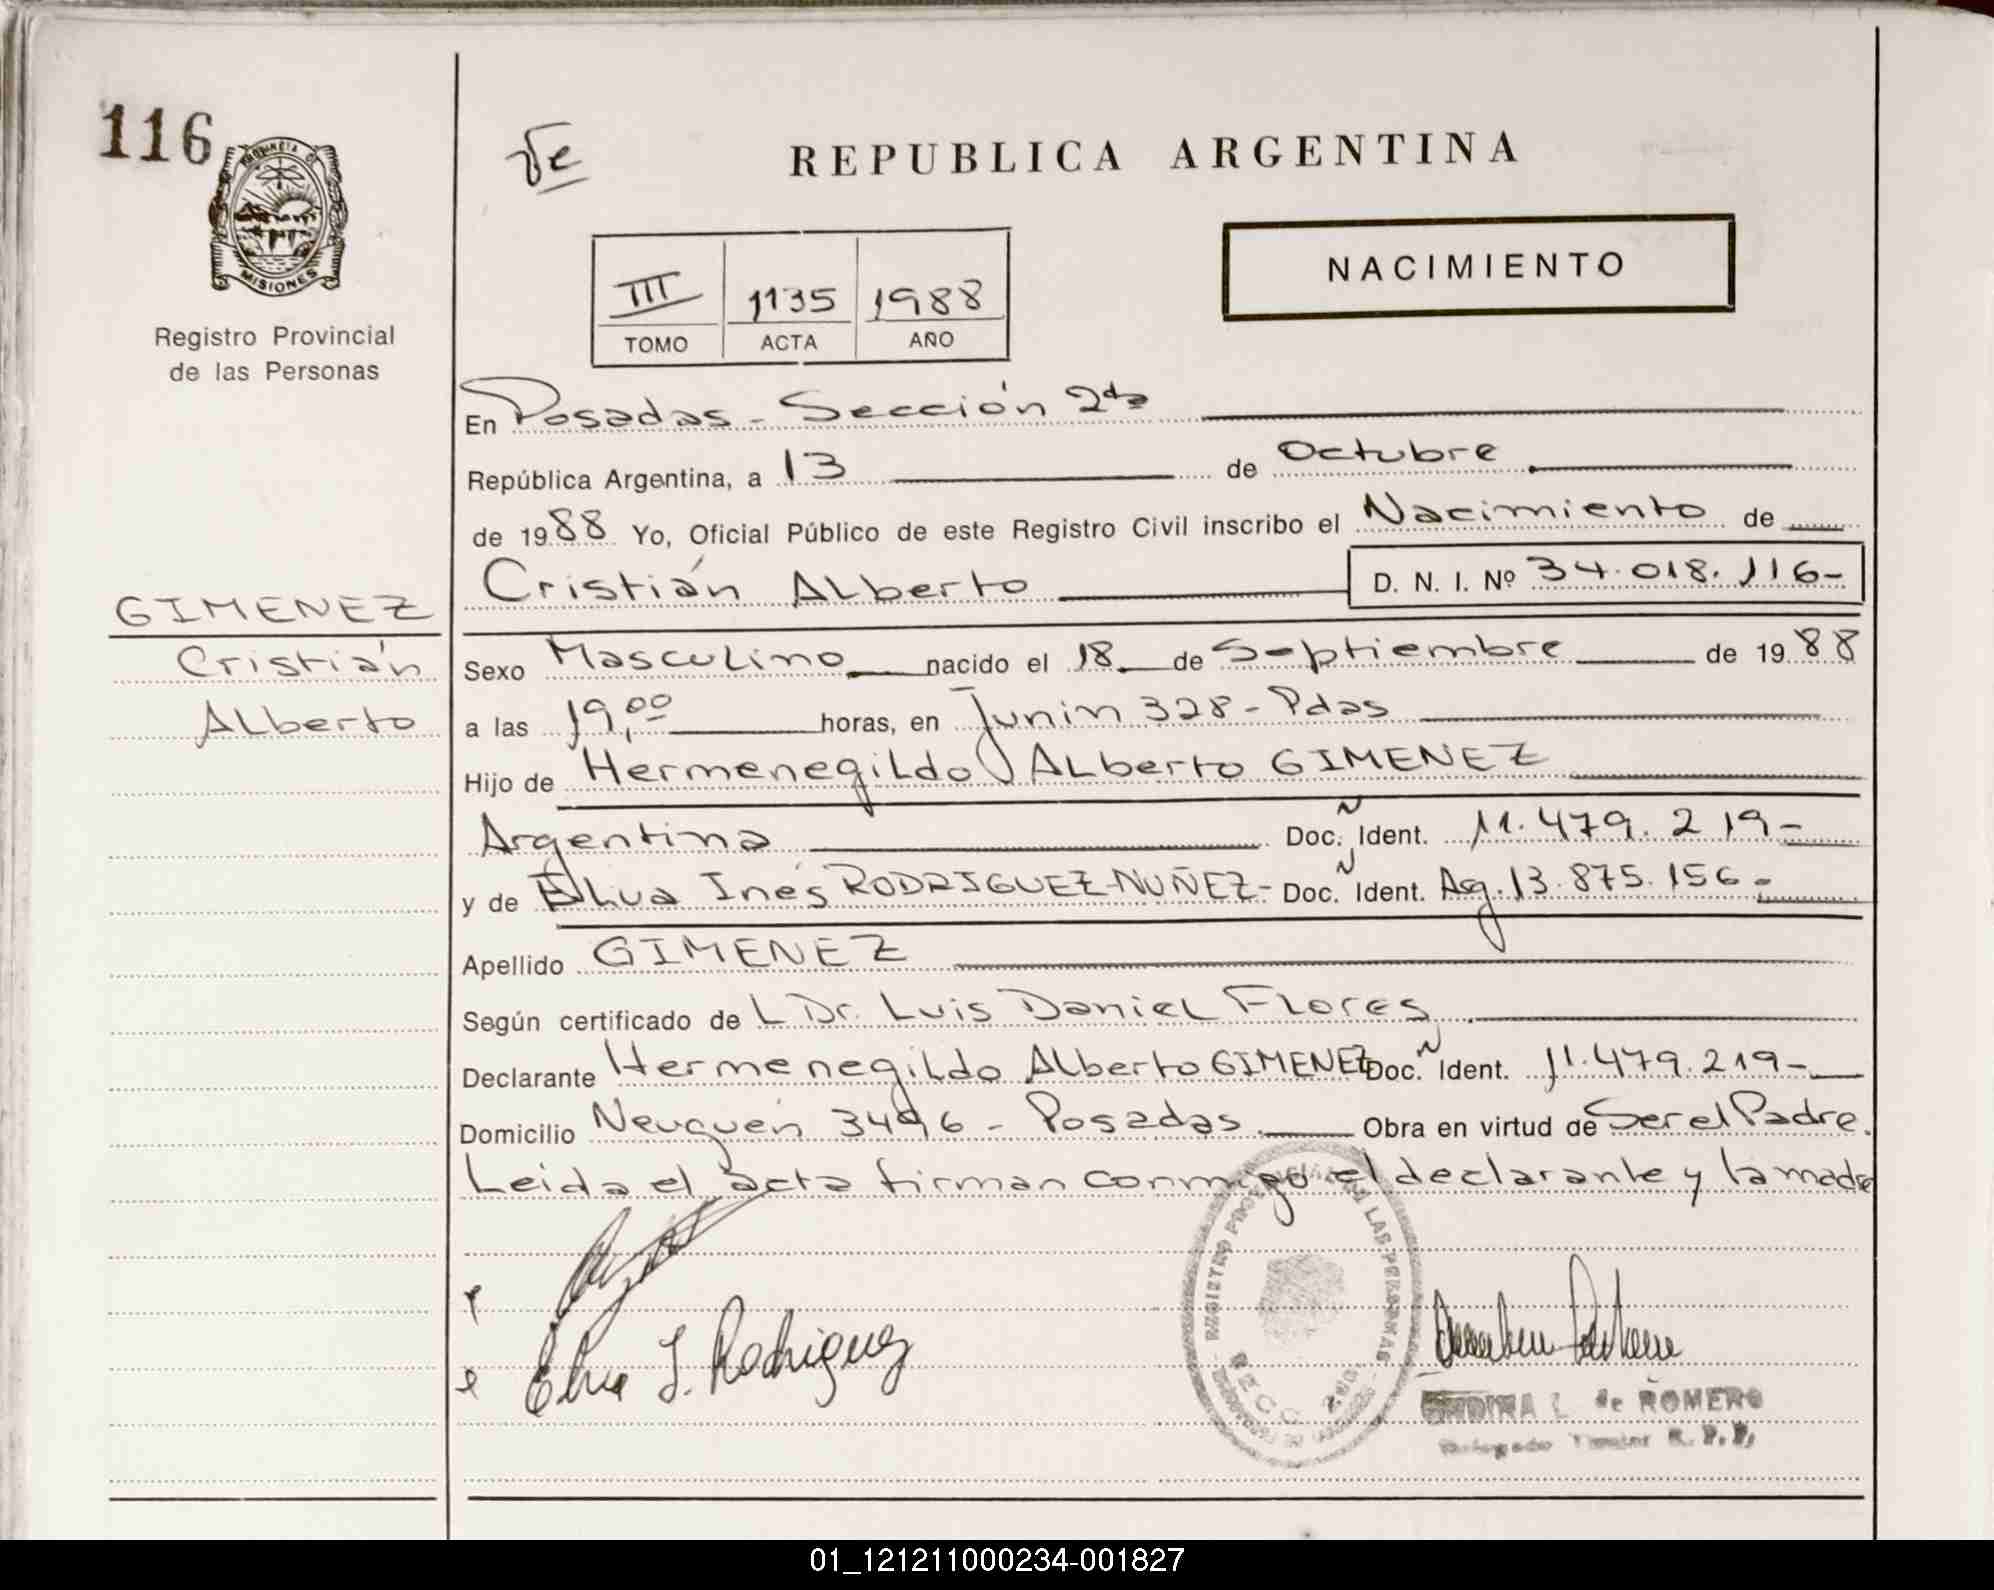 116
PROVINCIA DE
MISIONES
Registro Provincial
de las Personas
REPUBLICA ARGENTINA
NACIMIENTO
III 1135 1988
TOMO ACTA AÑO
En Posadas - Sección 2da
República Argentina, a 13 de Octubre
de 1988 Yo, Oficial Público de este Registro Civil inscribo el Nacimiento de
Cristián Alberto D. N. I. Nº 34.018.116-
GIMENEZ
Cristián
Alberto
Sexo Masculino nacido el 18 de Septiembre de 1988
a las 19,00 horas, en Junin 328 - Pdas
Hijo de Hermenegildo Alberto GIMENEZ
Argentina Doc. Ident. 11.479.219-
y de Elva Inés RODRIGUEZ-NUÑEZ- Doc. Ident. Ag. 13.875.156-
Apellido GIMENEZ
Según certificado de L Dr. Luis Daniel Flores
Declarante Hermenegildo Alberto GIMENEZ Doc. Ident. 11.479.219-
Domicilio Neuquén 3496 - Posadas. Obra en virtud de Ser el Padre.
Leida el acta firman conmigo el declarante y la madre
REGISTRO PROVINCIAL DE LAS PERSONAS
SECC 2da
Elva I. Rodriguez
L. de ROMERO
Delegado Titular R. P. P.
01_121211000234-001827